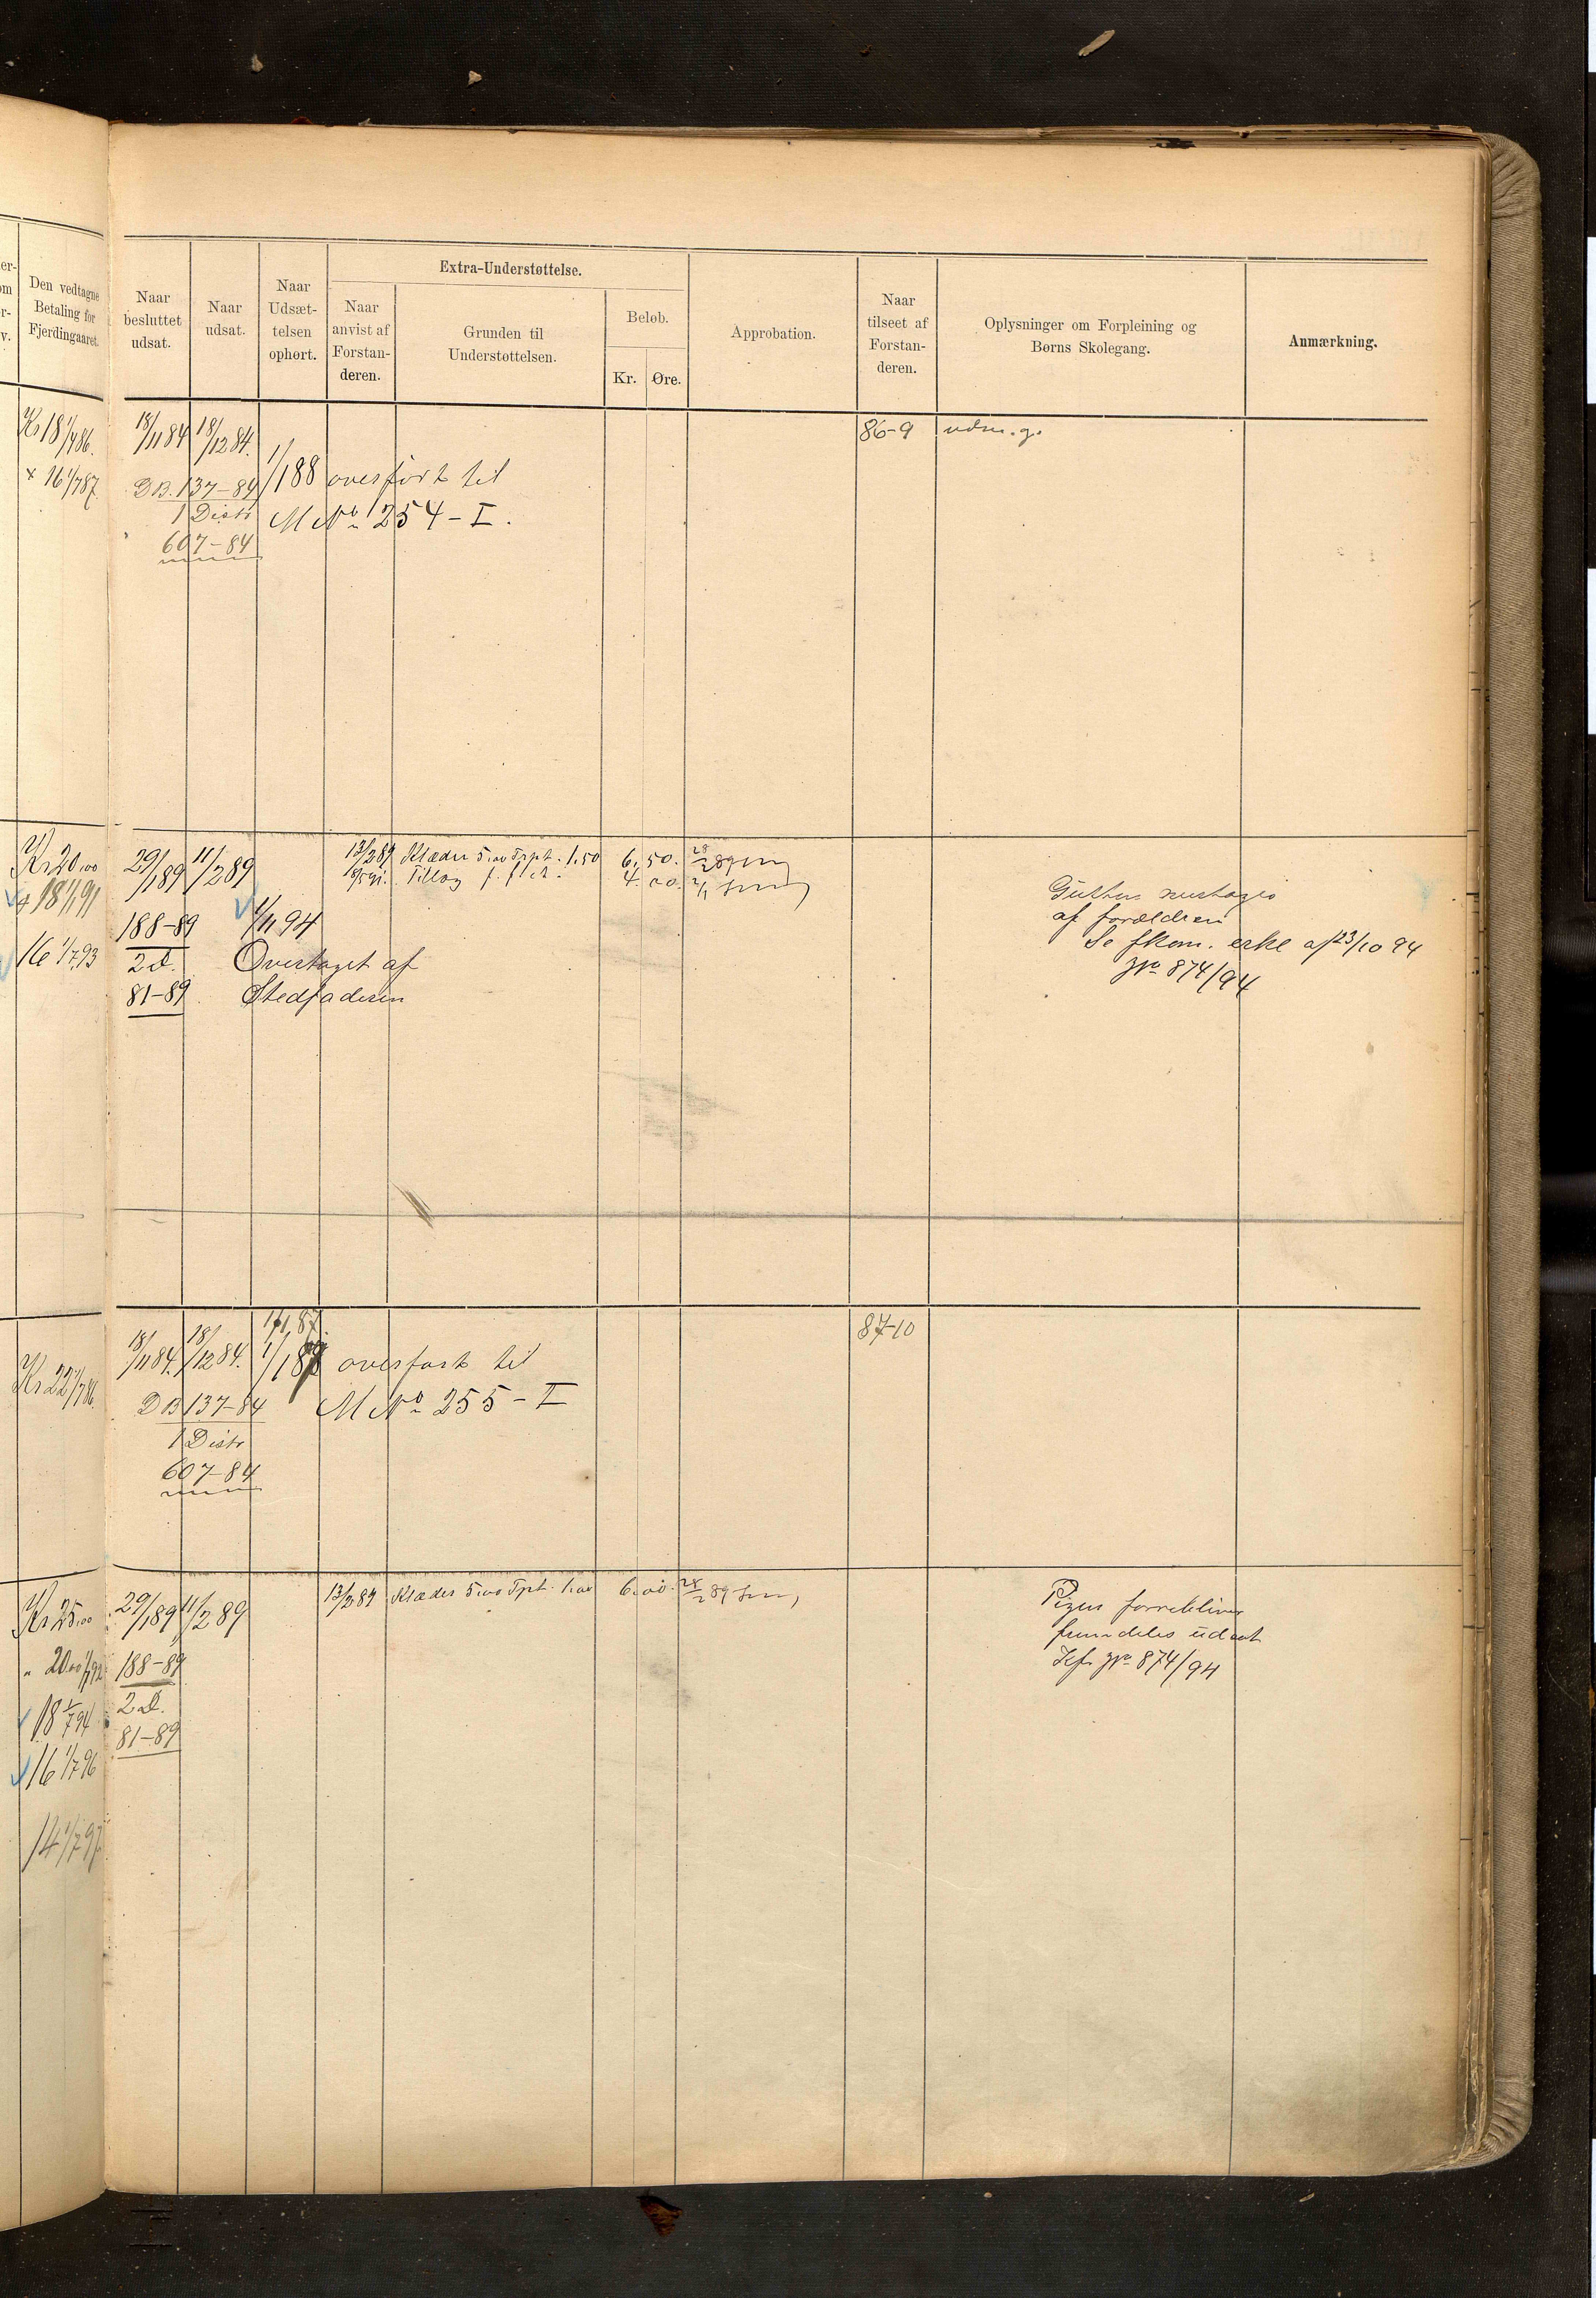 Den vedtagne
Betaling for
Fjerdingaaret.
Naar
besluttet
udsat.
Naar
udsat.
Naar
Udsæt-
telsen
ophørt.
Extra-Understøttelse.
Naar
anvist af
Forstan-
deren.
Grunden til
Understøttelsen.
Beløb.
Kr. Øre.
Approbation.
Naar
tilseet af
Forstan-
deren.
Oplysninger om Forpleining og
Børns Skolegang.
Anmærkning.
Kr 18 1/7 86.
16 1/7 87.
18/11 84 18/12 84.
1/1 88 overført til
D B. 137-84
M No 254-I.
1 Distr
607-84
86-9
Kr 20,00
18 1/1 91
16 1/7 93
29/1 89 11/2 89
13/2 89 Klæder 5,00 Trpt. 1,50 6. 50. 28/2 89
Tillæg 4. 00.
188-89 1/11 94
2 d. Overtaget af
81-89 Stedfaderen
Gutten
af forældren
Se fkom. af 23/10 94
No 874/94
Kr 22 1/7 86.
18/11 84. 18/12 84. overført til
D B 137-84 M No 255-I
1 Distr
607-84
87-10
Kr 25,00
" 20,00
18 1/7 94
16 1/7 96
14 1/7 97
29/1 89 11/2 89 13/2 89 Klæder 5,00 Trpt. 1,00 6. 00. 28/2 89
188-89
2 d.
81-89
Pigen forrebliver
fremdeles udsat
No 874/94